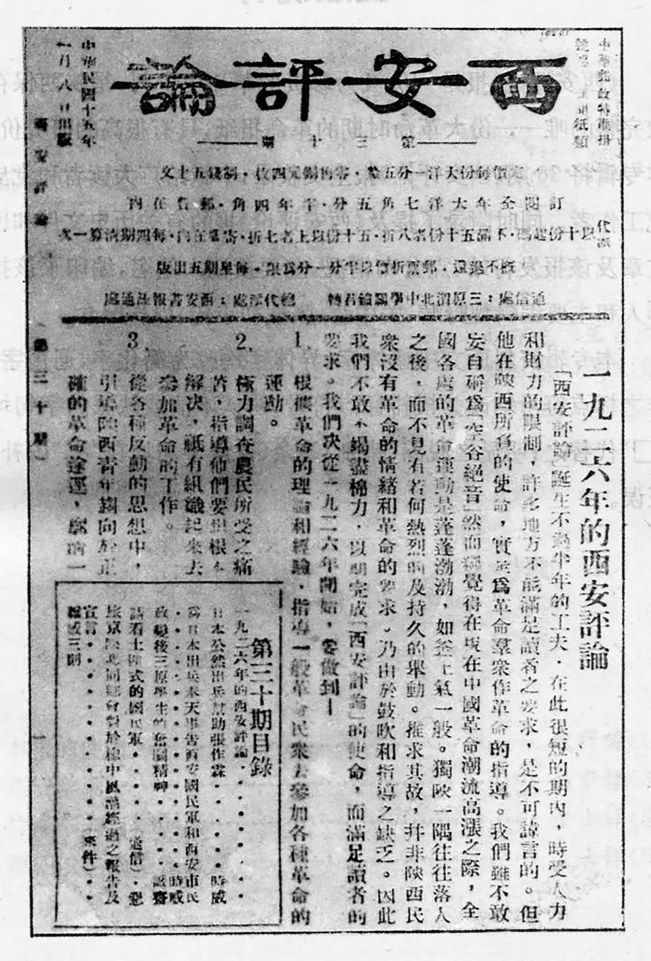 中華郵政特准掛
號認爲新聞紙類
西安評論
中華民國十五年
一月八日出版
第三十期
定價每份大洋一分五釐・零售銅元四枚・制錢五十文
訂閱全年大洋七角五分・半年四角・郵費在內
代派
以十份起碼・不滿五十份者八折・五十份以上者七折・寄費在內・每四期清算一次
概不退還・郵票折價以半分一分爲限・每星期五出版
通信處：三原渭北中學
總代派處：西安書報社
西安評論
第三十期
一
一九二六年的西安評論
「西安評論」誕生不過半年的工夫・在此很短的期內，時受人力
和財力的限制，許多地方不能滿足讀者之要求，是不可諱言的。但
他在陝西所負的使命，實在爲革命羣衆作革命的指導。我們雖不敢
妄自稱爲「空谷絕音」然而總覺得在現在中國革命潮流高漲之際，全
國各處的革命運動是蓬蓬渤渤，如釜上氣一般。獨陝一隅往往落人
之後，而不見有若何熱烈的及持久的舉動。推求其故，并非陝西民
衆沒有革命的情緒和革命的要求。乃由於鼓吹和指導之缺乏。因此
我們不敢不竭盡棉力，以期完成「西安評論」的使命，而滿足讀者的
要求。我們決從一九二六年開始，要做到—
1、根據革命的理論和經驗，指導一般革命民衆去參加各種革命的
運動。
2、極力調查農民所受之痛
苦，指導他們要想根本
解決，祇有組織起來去
參加革命的工作。
3、從各種反動的思想中，
引導陝西青年趨向於正
確的革命途運，
第三十期目錄
一九二六年的西安評論
日本公然出兵幫助張作霖
爲日本出兵奉天事告西安國民軍和西安市民
政變後三原學生的奮鬬精神
請看土匪式的國民軍（通信）
宣言（來件）